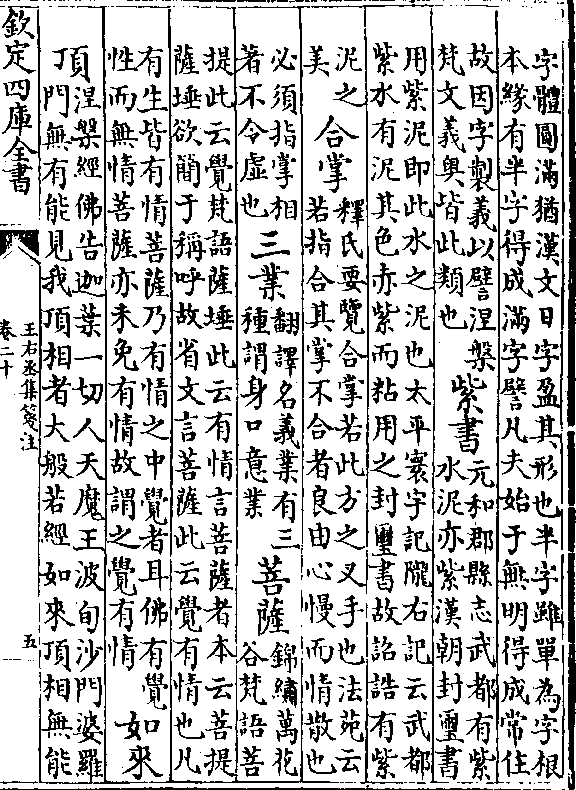 字體圓滿猶漢文日字盈其形也半字雖單為字根
本緣有半字得成滿字譬凡夫始于無明得成常住
故因字製義以譬涅槃
梵文義奧皆此類也
紫書
元和郡縣志武都有紫
水泥亦紫漢朝封璽書
用紫泥即此水之泥也太平寰宇記隴右記云武都
紫水有泥其色赤紫而粘用之封璽書故詔誥有紫
泥之
美
合掌
釋氏要覽合掌若此方之叉手也法苑云
若指合其掌不合者良由心慢而情散也
必須指掌相
著不令虛也
三業
翻譯名義業有三
種謂身口意業
菩薩
錦繡萬花
谷梵語菩
提此云覺梵語薩埵此云有情言菩薩者本云菩提
薩埵欲簡于稱呼故省文言菩薩此云覺有情也凡
有生皆有情菩薩乃有情之中覺者耳佛有覺
性而無情菩薩亦未免有情故謂之覺有情
如來
頂
涅槃經佛告迦葉一切人天魔王波旬沙門婆羅
門無有能見我頂相者大般若經如來頂相無能
欽定四庫全書
王右丞集箋注
卷二十
五